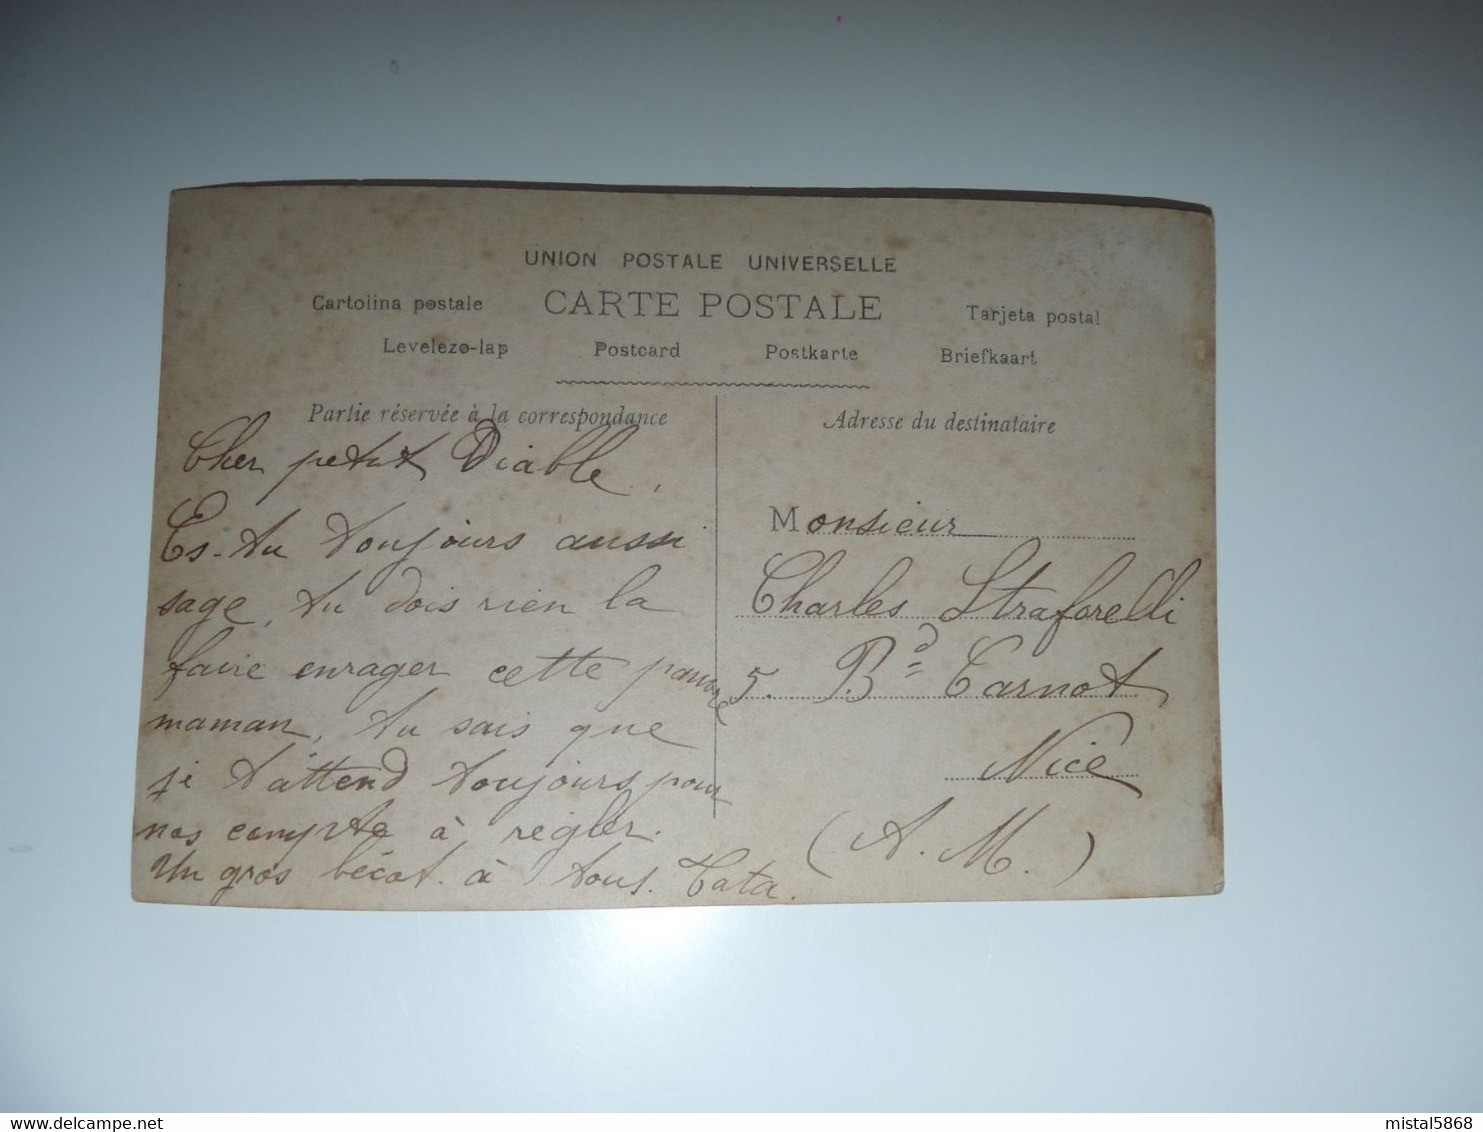 UNION POSTALE UNIVERSELLE
Cartolina postale CARTE POSTALE Tarjeta postal
Levelezo-lap Postcard Postkarte Briefkaart
Partie réservée à la correspondance
Cher petit Diable,
Es-tu toujours aussi
sage, tu dois rien la
faire enrager cette pauvre
maman, tu sais que
je t'attend toujours pour
nos compte à regler.
Un gros bécot à tous. Tata.
Adresse du destinataire
Monsieur
Charles Straforelli
5. Bd Carnot
Nice
(A. M.)
mistal5868